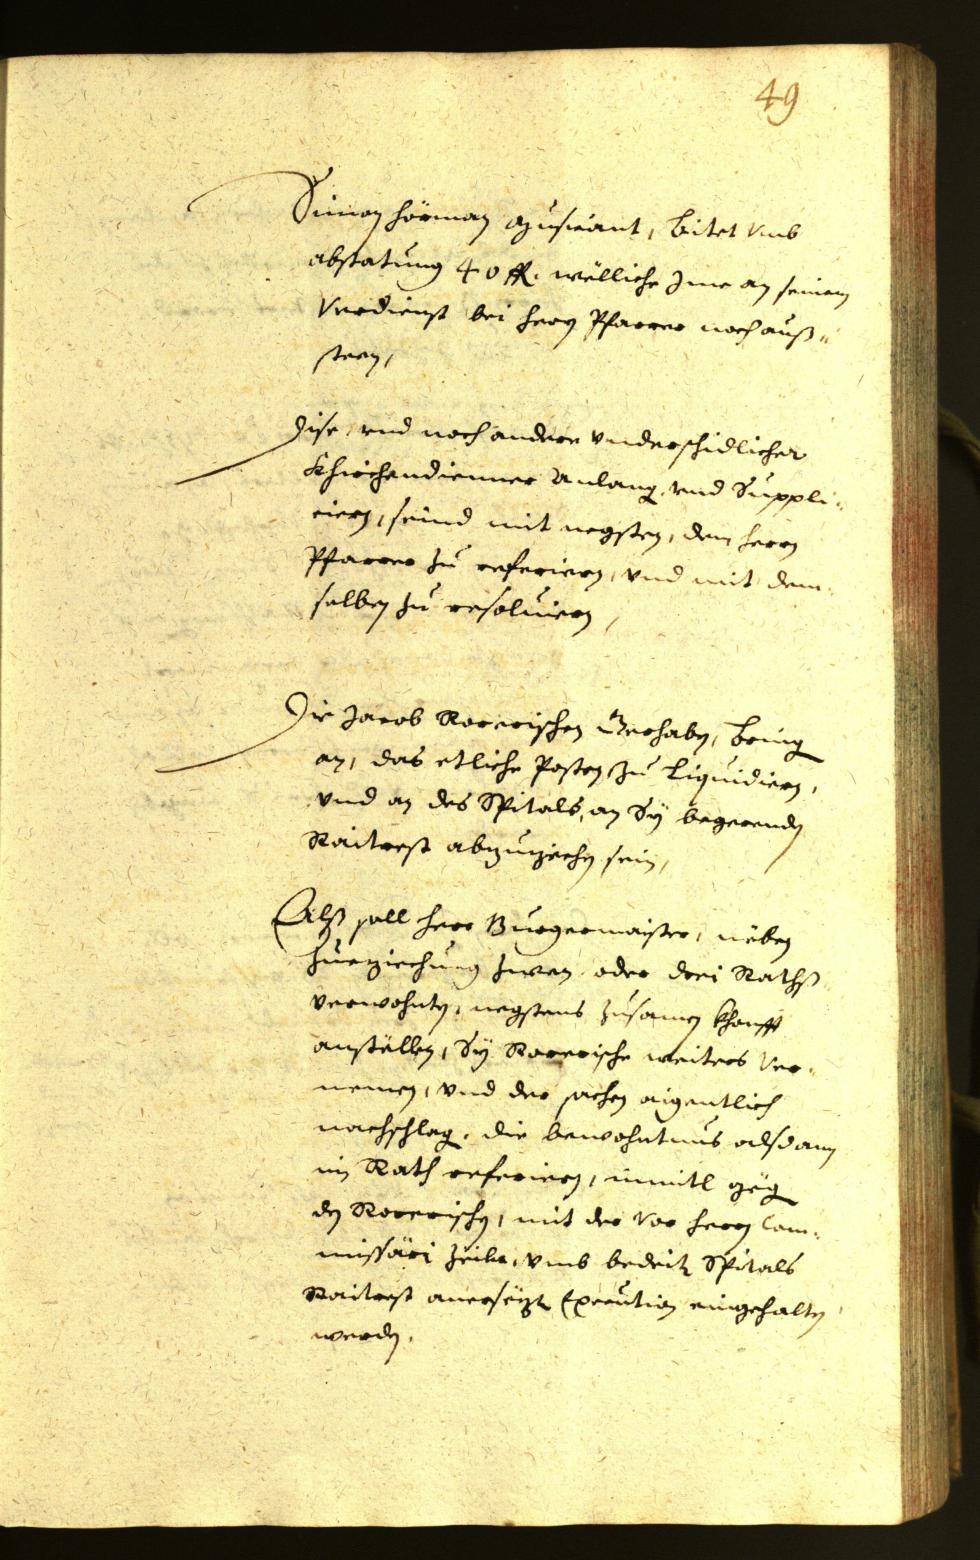 49
Simon Hörman Musicant, bitet vmb
abstatung 40 fl. wölliche Ime an seinem
Verdienst bei Herrn Pfarrer noch auß„
steen,
Dise, vnd noch andere vnderschidlicher
Khirchendienner Anlang, vnd Suppli„
ciern, seind mit negsten, dem Herrn
Pfarrer zu referiern, vnd mit dem„
selben zu resoluiern,
Die Jacob Rorerischen Gerhaben, bring
an, das etliche Posten zu liquidiern,
vnd an des Spitals, an Sÿ begerenden
Raitrest abzuziechen sein,
Alß soll Herr Burgermaister, neben
zueziechung zwen oder drei Raths„
verwohnten, negstens zusamen khonfft
anstellen, Sÿ Rorerische weiters ver„
nemen, vnd der sachen aigentlich
nachschlag, die bewohntnus alsdann
im Rath referiern, inmitl geg
den Rorerischen, mit der vor Herrn Com„
missäri Zeiler, vmb bedeite Spitals
Raitrest anersezte Execution eingehalten
werden.